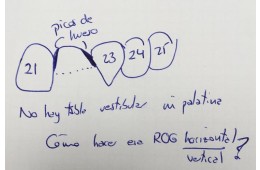 picos de
hueso
21 23 24 25
No hay tabla vestibular ni palatina
Cómo hacer esa ROG horizontal
vertical ?